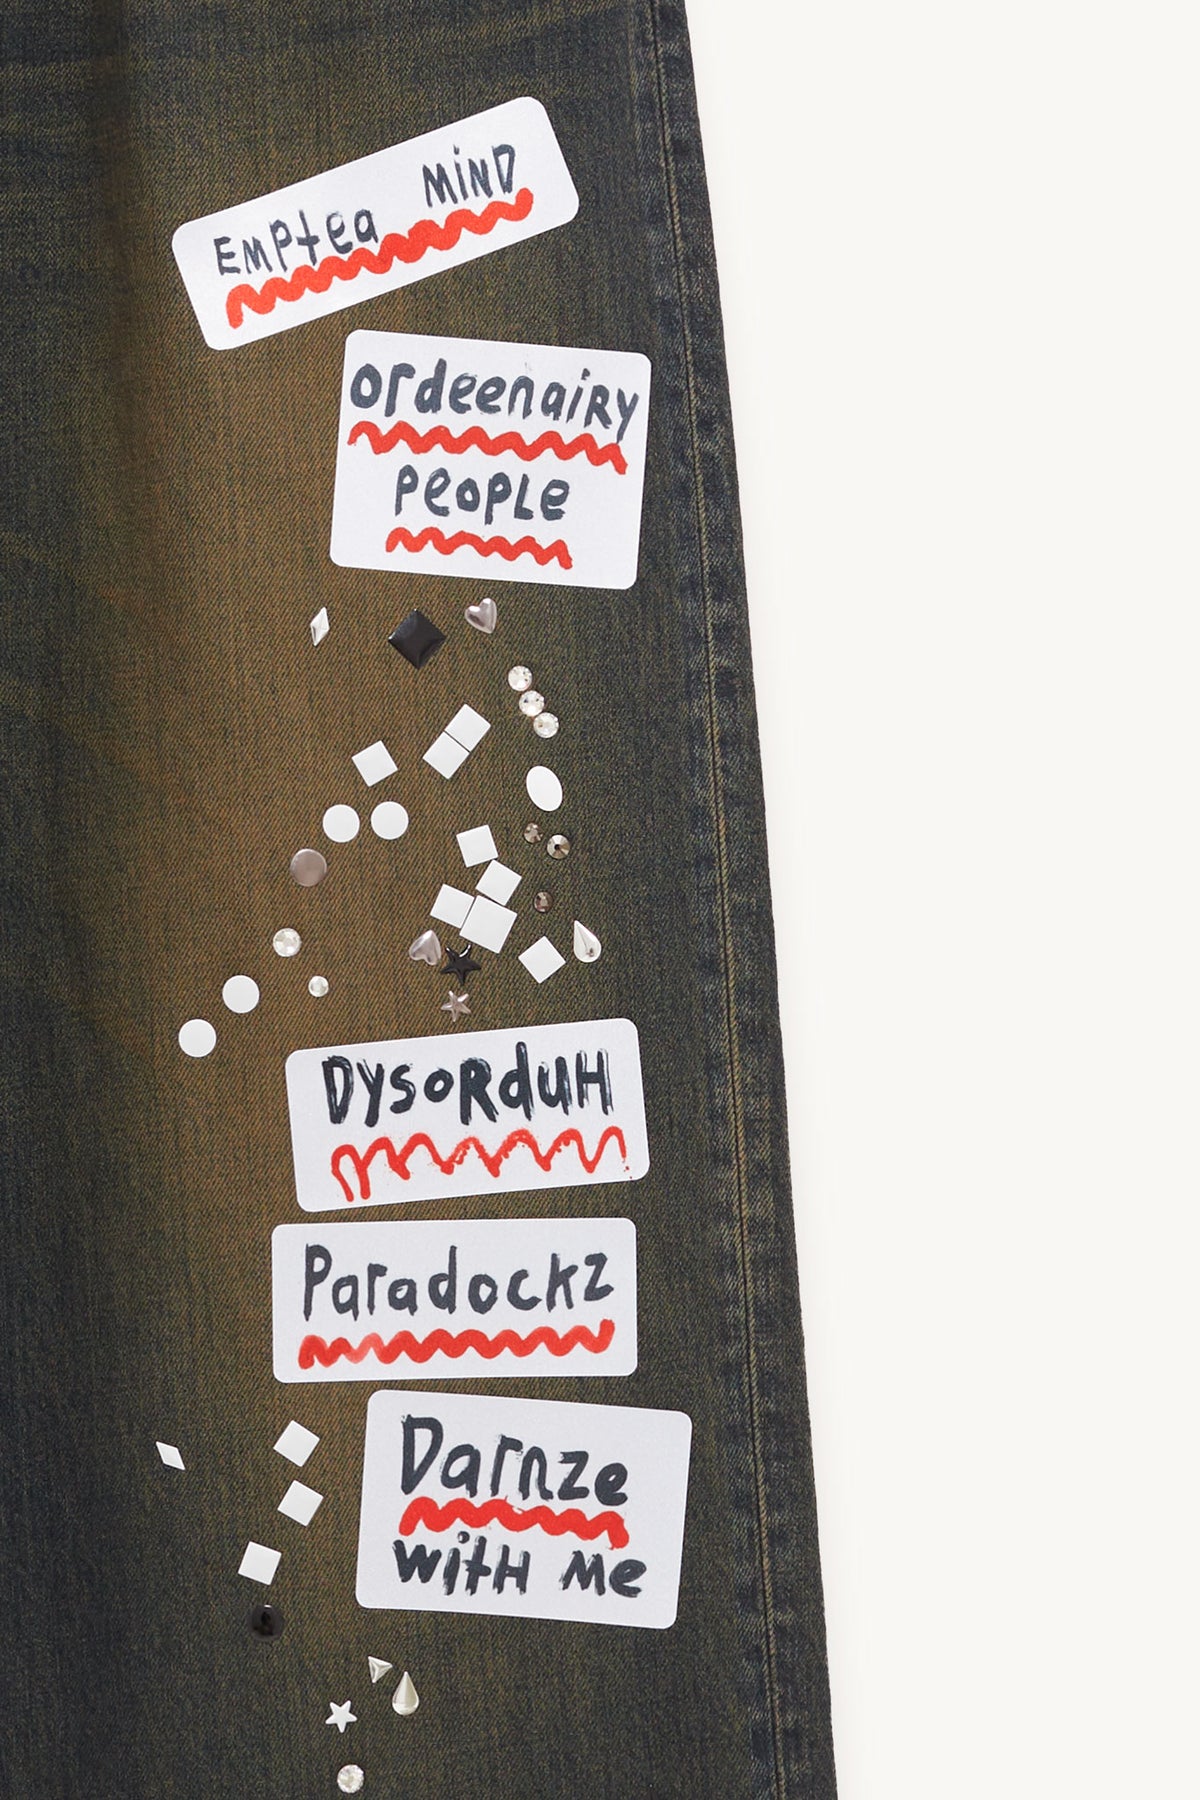 EMPtea MiND
ordeenaiRy
PEOPLE
DYSORduH
Paradockz
Darnze
witH Me